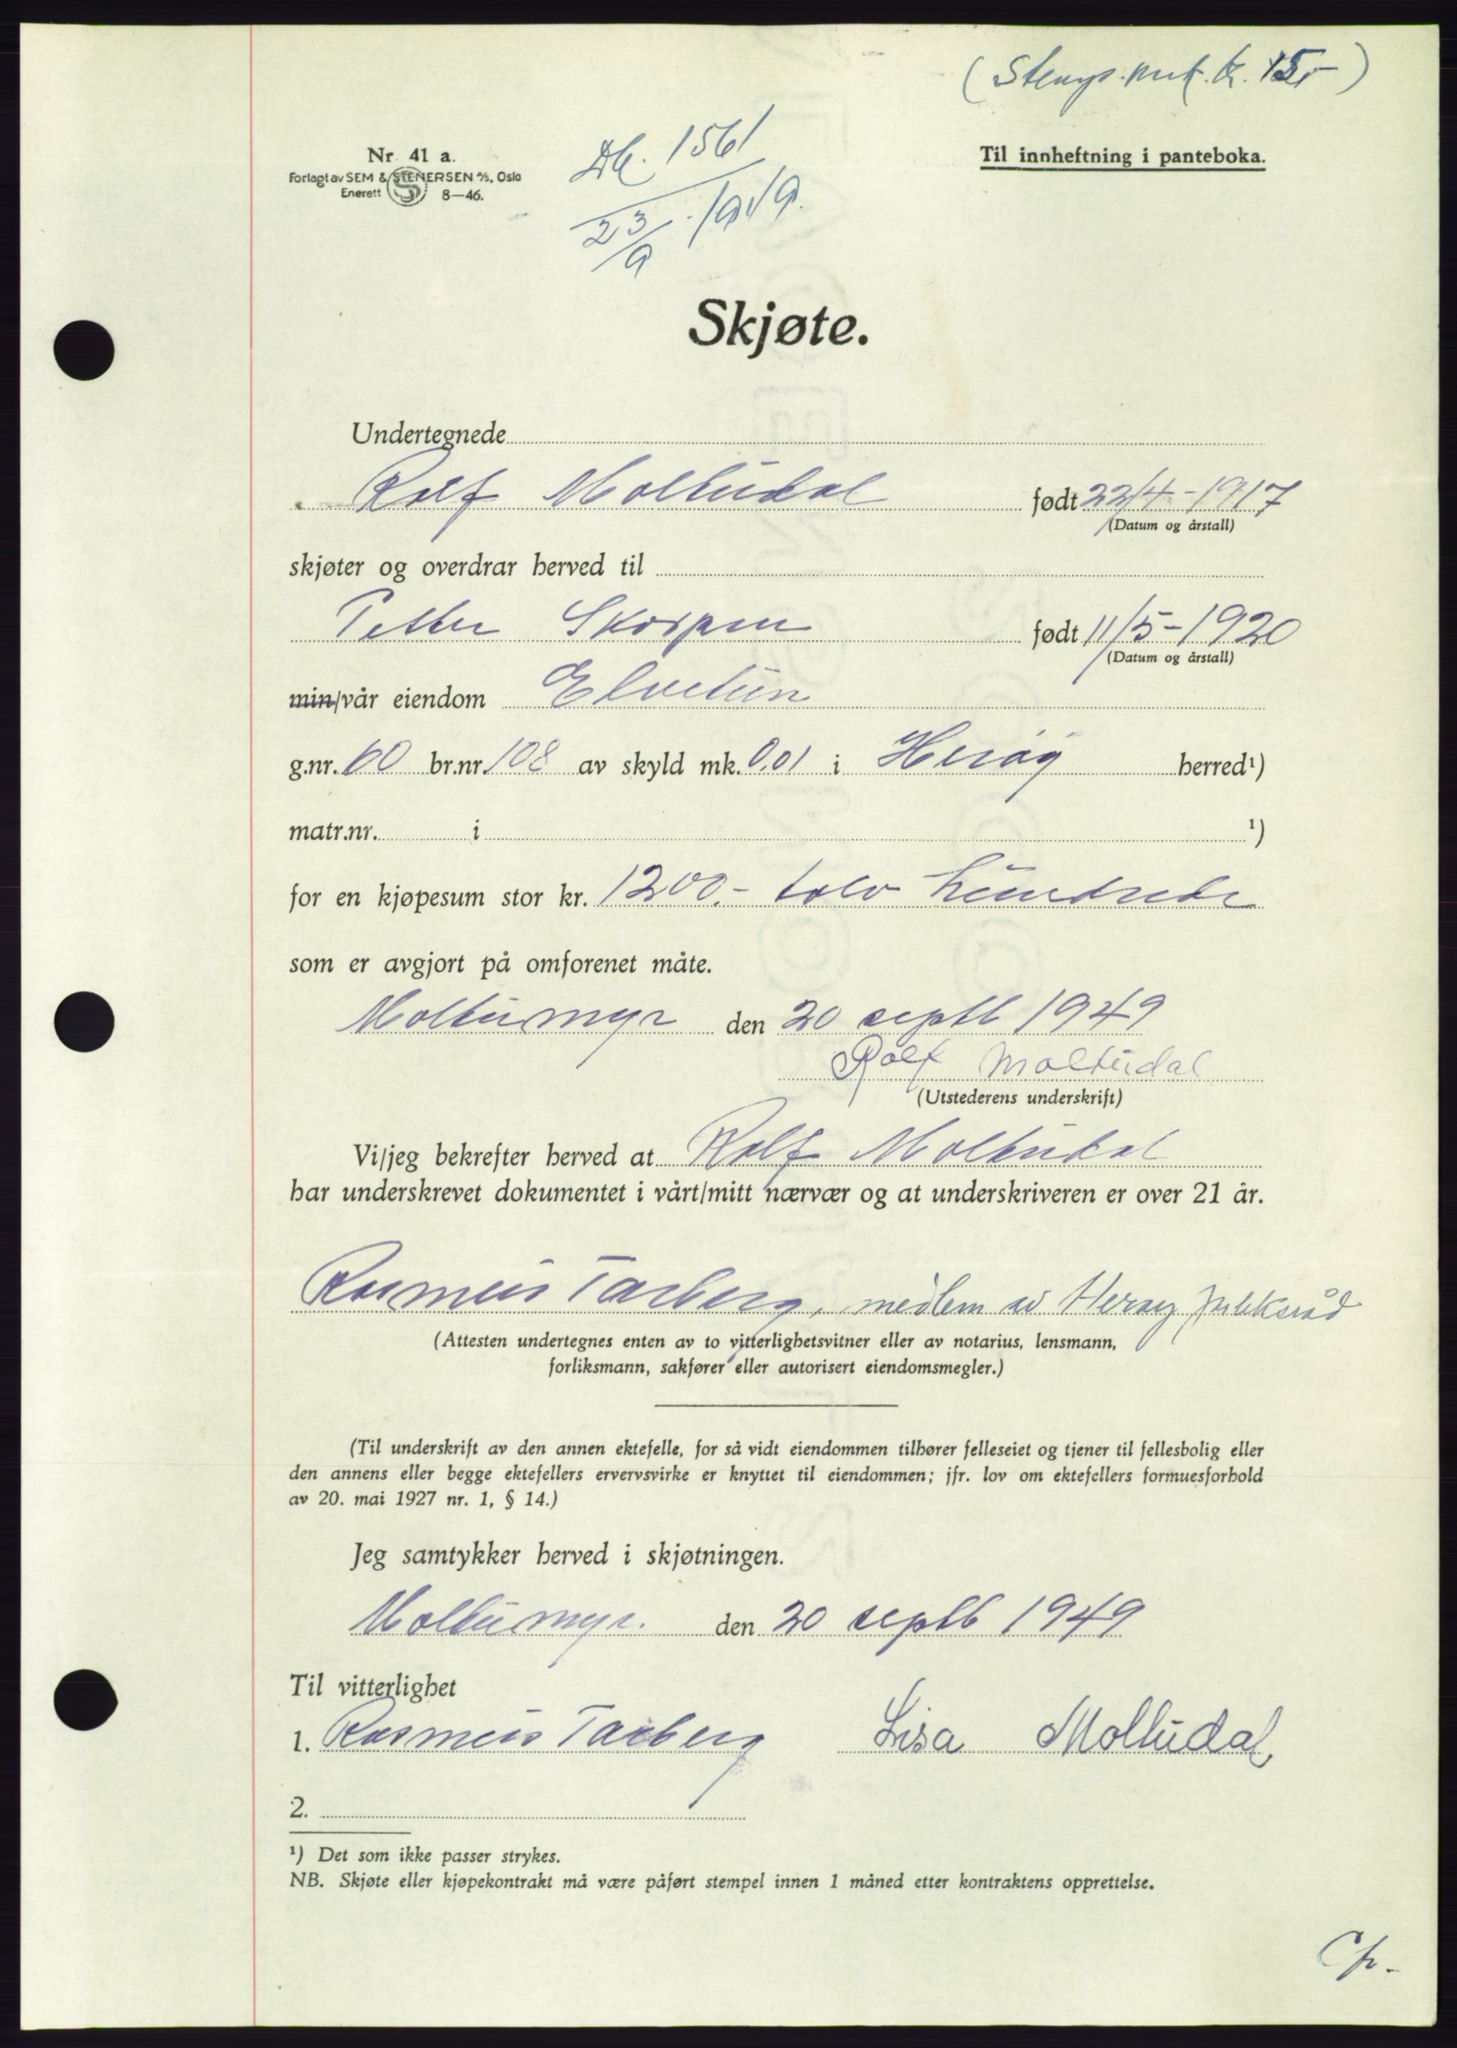 (Stemp.merk. kr. 15,-)
Nr. 41 a.
Forlagt av SEM & STENERSEN A/S, Oslo
Enerett 8—46.
Db. 1561
23/9 . 1949.
Til innheftning i panteboka.
Skjøte.
Undertegnede
Rolf Moltudal født 22/4-1917
(Datum og årstall)
skjøter og overdrar herved til
Petter Skorpen født 11/5-1920
(Datum og årstall)
min/vår eiendom Elvetun
g.nr. 60 br.nr. 108 av skyld mk. 0,01 i Herøy herred¹)
matr.nr. i ¹)
for en kjøpesum stor kr. 1200.- tolv hundrede
som er avgjort på omforenet måte.
Moltumyr den 20 septb 1949
Rolf Moltudal
(Utstederens underskrift)
Vi/jeg bekrefter herved at Rolf Moltudal
har underskrevet dokumentet i vårt/mitt nærvær og at underskriveren er over 21 år.
Rasmus Tarberg, medlem av Herøy forliksråd
(Attesten undertegnes enten av to vitterlighetsvitner eller av notarius, lensmann,
forliksmann, sakfører eller autorisert eiendomsmegler.)
(Til underskrift av den annen ektefelle, for så vidt eiendommen tilhører felleseiet og tjener til fellesbolig eller
den annens eller begge ektefellers ervervsvirke er knyttet til eiendommen; jfr. lov om ektefellers formuesforhold
av 20. mai 1927 nr. 1, § 14.)
Jeg samtykker herved i skjøtningen.
Moltumyr. den 20 septb 1949
Til vitterlighet
1. Rasmus Tarberg Lisa Moltudal
2.
¹) Det som ikke passer strykes.
NB. Skjøte eller kjøpekontrakt må være påført stempel innen 1 måned etter kontraktens opprettelse.